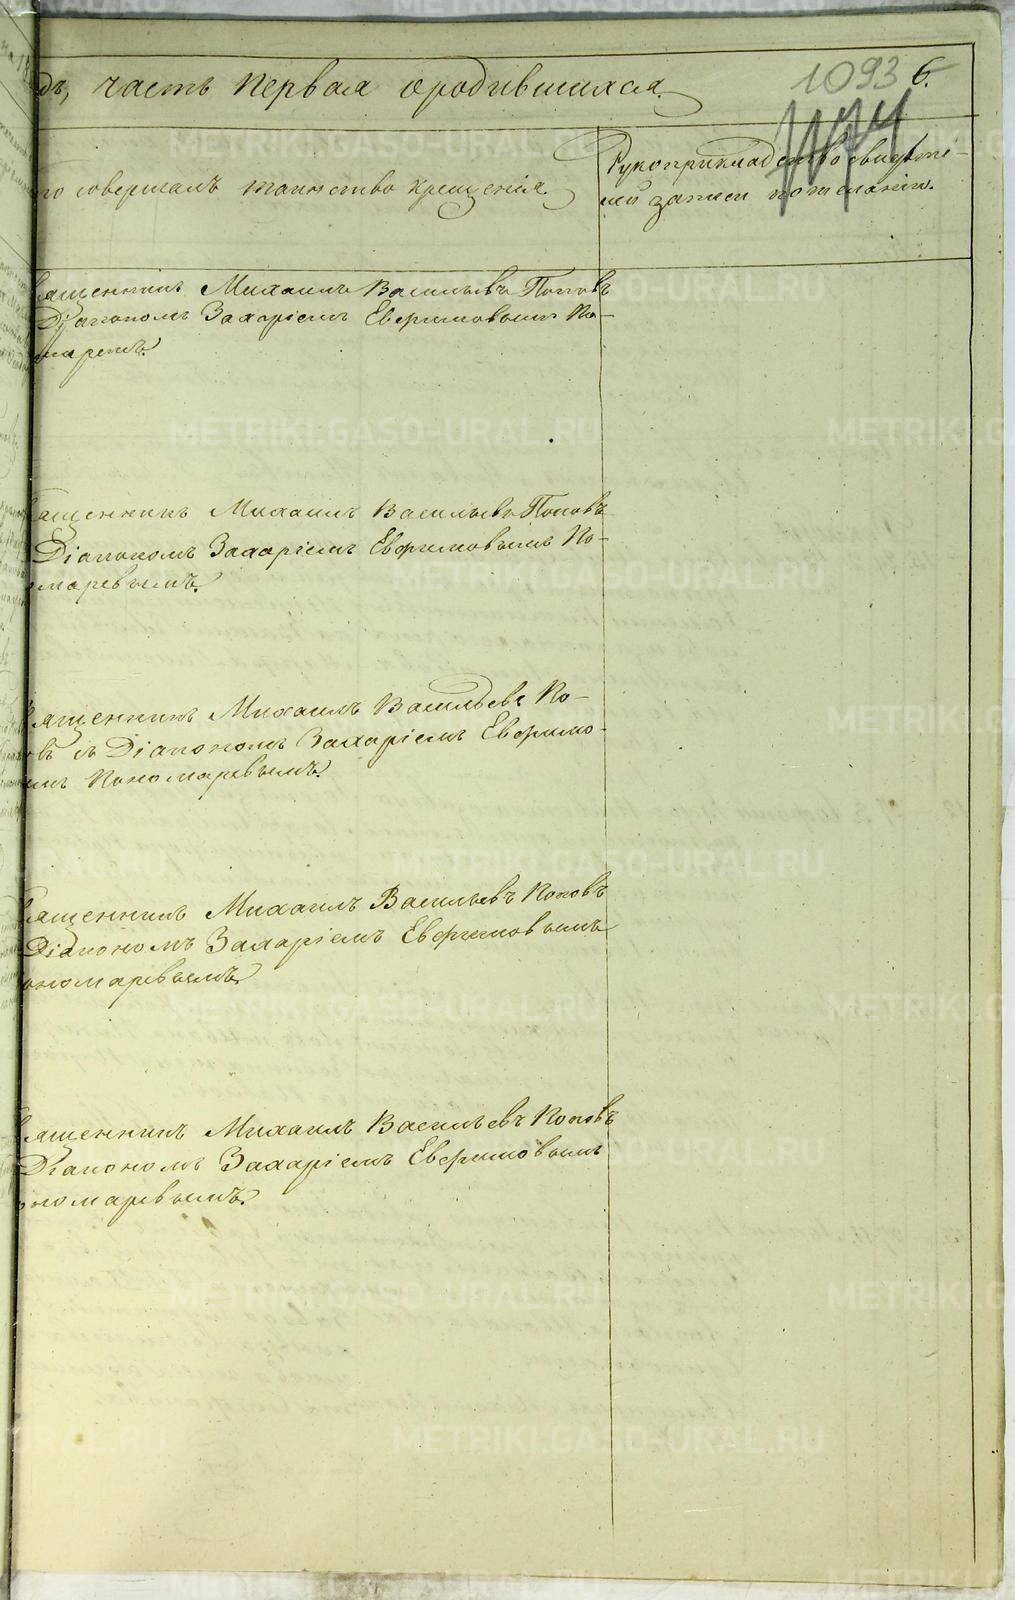 дъ, часть первая о родившихся.
1093 6.
1174
то совершалъ таинство крещенія.
Рукоприкладство свидѣте-
лей записи по желанію.
священникъ Михаилъ Васильевъ Поповъ
Діакономъ Захаріемъ Евфимовымъ По-
марев.
священникъ Михаилъ Васильевъ Поповъ
Діакономъ Захаріемъ Евфимовымъ По-
маревымъ.
Священникъ Михаилъ Васильевъ По-
овъ съ Діакономъ Захаріемъ Евфимо-
ымъ Пономаревымъ.
священникъ Михаилъ Васильевъ Поповъ
Діакономъ Захаріемъ Евфимовымъ
ономаревымъ.
священникъ Михаилъ Васильевъ Поповъ
Діакономъ Захаріемъ Евфимовымъ
ономаревымъ.
METRIKI.GASO-URAL.RU